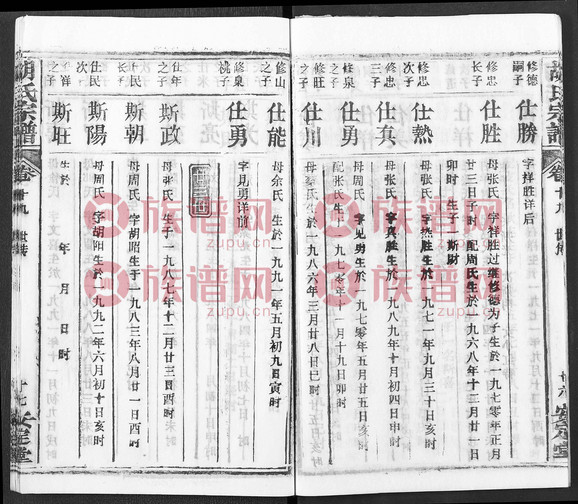 胡氏宗譜
修德嗣子
仕勝
字祥胜详后
修忠長子
仕胜
母張氏 字祥胜过继修德为子生於一九七零年正月
廿三日子时 配周氏生於一九六八年十二月廿二日
卯时 生子一斯財
修忠次子
仕熱
母張氏 字热胜生於一九七一年九月三十日亥时
修忠三子
仕真
母張氏 字真胜生於一九八九年十月初四日申时
修泉之子
仕勇
母張氏 字见勇生於一九七零年五月廿五日亥时
配张氏生於一九七零年十一月十九日卯时
修旺之子
仕川
母李氏生於一九八六年三月廿八日巳时
安定堂
修山之子
仕能
母余氏 生於一九九一年五月初九日寅时
修泉祧子
仕勇
字见勇详前
仕年之子
斯政
母張氏 生于一九八七年十二月廿三日酉时
仕民長子
斯朝
母周氏 字胡昭生于一九八三年八月廿一日酉时
仕民次子
斯陽
母周氏 字胡阳生於一九九二年六月初十日亥时
之子
斯旺
生於 年 月 日 时
胡氏宗譜
十七
安定堂
族谱网
zupu.cn